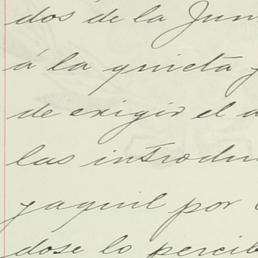 dos de la Jun
á la quieta y
de exigir el a
las introdu
yaquil por
dose lo percib